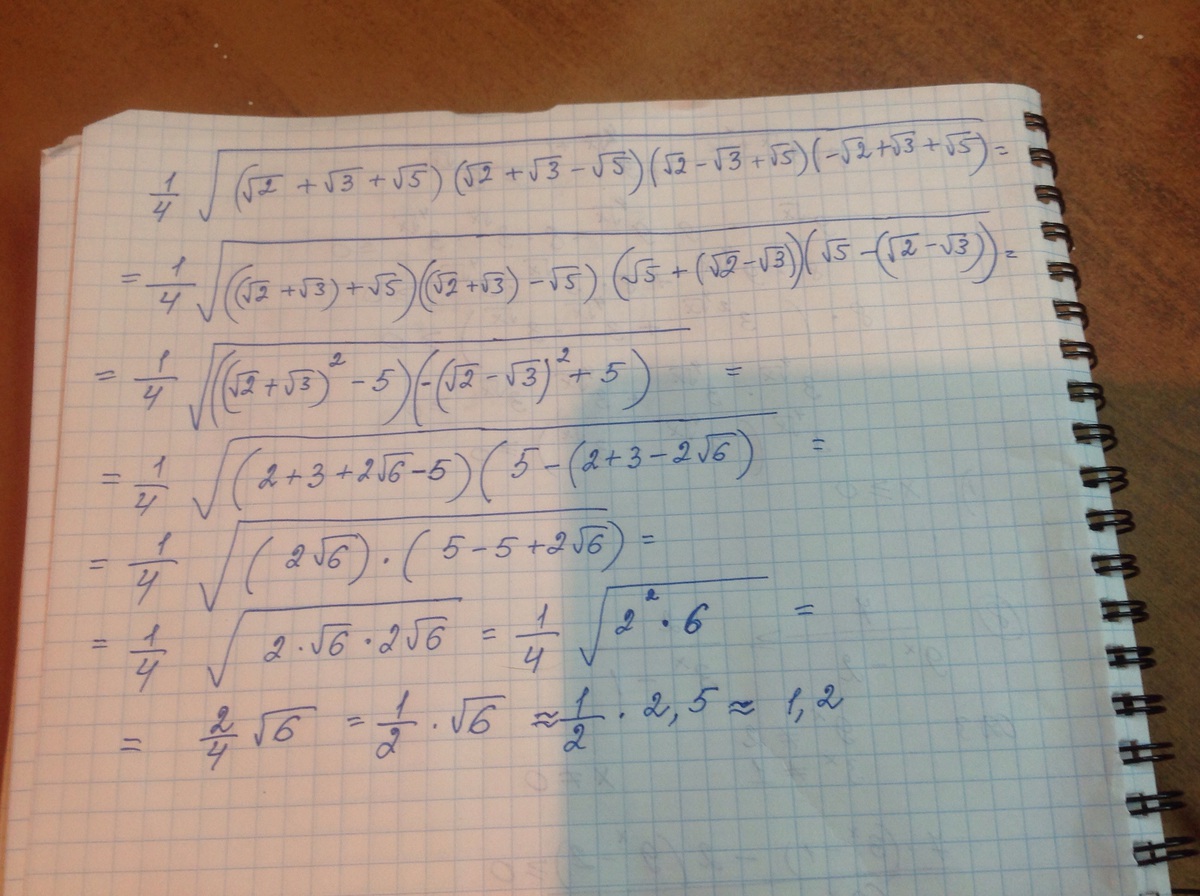 1/4 √((√2 + √3 + √5) (√2 + √3 - √5) (√2 - √3 + √5) (-√2 + √3 + √5)) =
= 1/4 √(((√2 + √3) + √5) ((√2 + √3) - √5) (√5 + (√2 - √3)) (√5 - (√2 - √3)) =
= 1/4 √(((√2 + √3)² - 5) (-(√2 - √3)² + 5) =
= 1/4 √(2 + 3 + 2√6 - 5) (5 - (2 + 3 - 2√6) =
= 1/4 √(2√6) · (5 - 5 + 2√6) =
= 1/4 √(2 · √6 · 2√6) = 1/4 √(2² · 6) =
= 2/4 √6 = 1/2 · √6 ≈ 1/2 · 2,5 ≈ 1,2